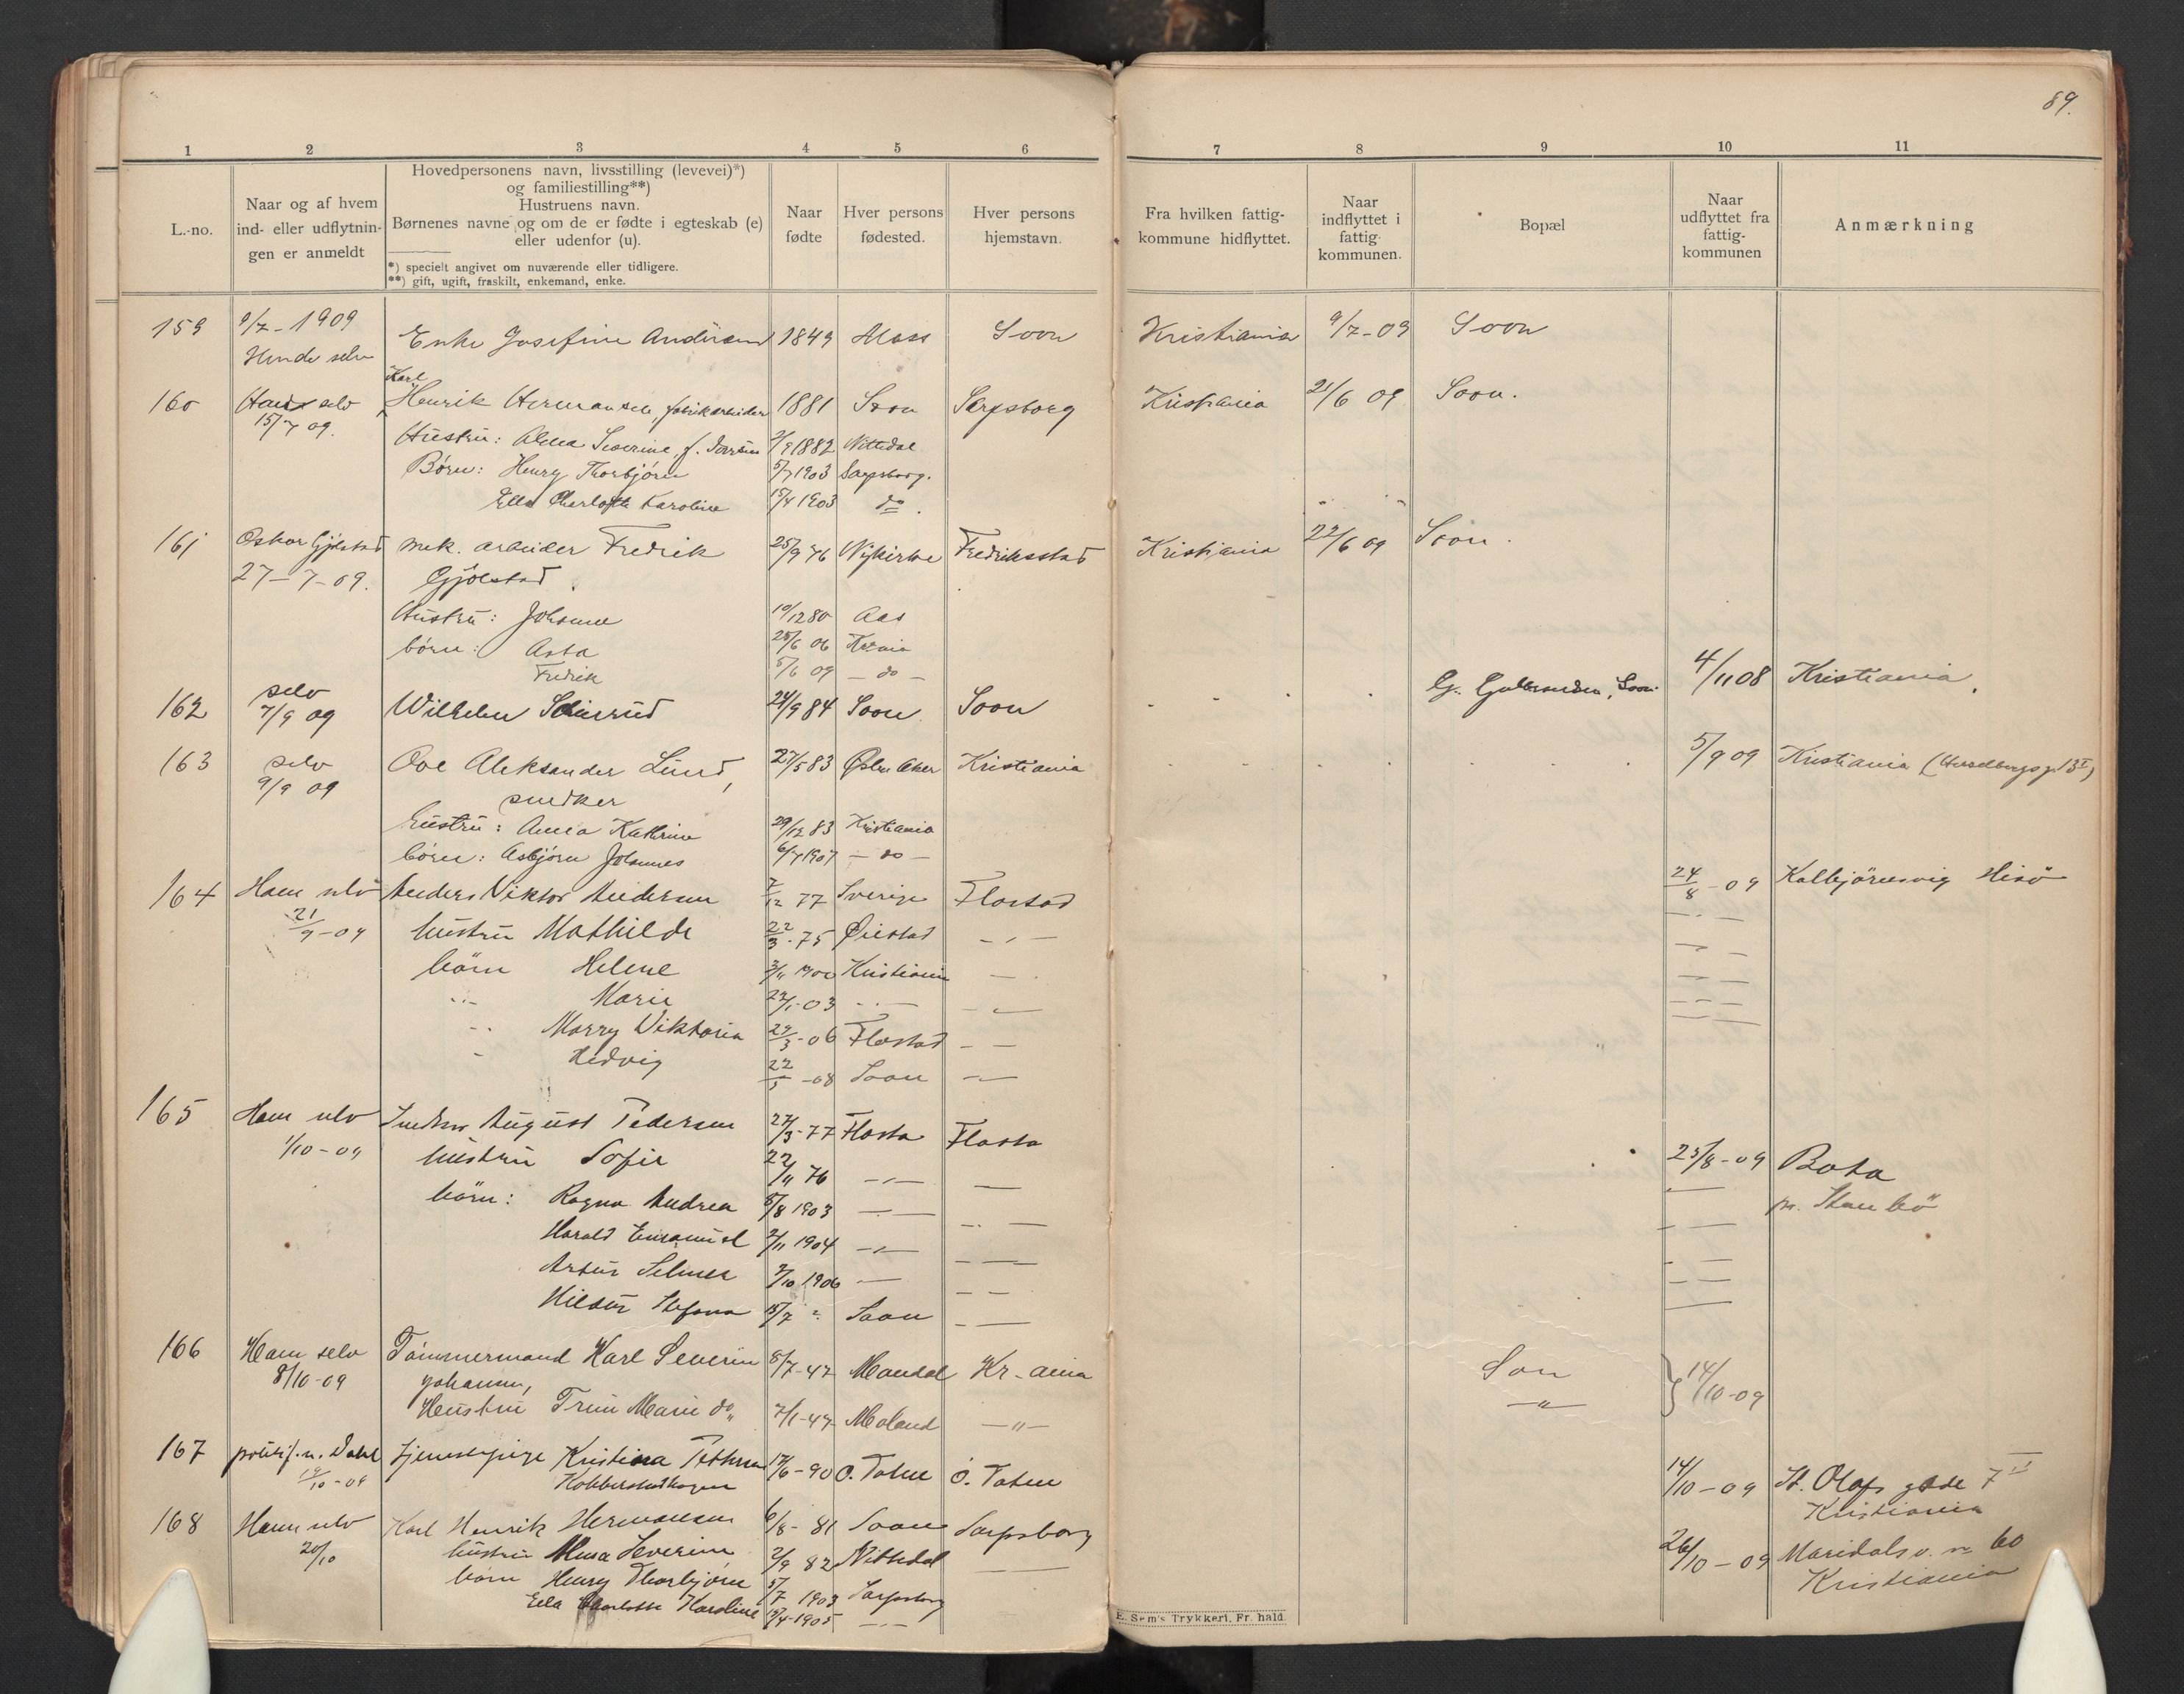 89.
1 2 3 4 5 6 7 8 9 10 11
L.-no.
Naar og af hvem
ind- eller udflytnin-
gen er anmeldt
Hovedpersonens navn, livsstilling (levevei)*)
og familiestilling**)
Hustruens navn.
Børnenes navne og om de er fødte i egteskab (e)
eller udenfor (u).
*) specielt angivet om nuværende eller tidligere.
**) gift, ugift, fraskilt, enkemand, enke.
Naar
fødte
Hver persons
fødested.
Hver persons
hjemstavn.
Fra hvilken fattig-
kommune hidflyttet.
Naar
indflyttet i
fattig-
kommunen.
Bopæl
Naar
udflyttet fra
fattig-
kommunen
Anmærkning
159 9/7-1909 Enke Josefine Andersen 1849 Moss Soon Kristiania 9/7-09 Soon
Hende selv
Karl
160 Ham selv Henrik Hermansen, fabrikarbeider 1881 Soon Sarpsborg Kristiania 21/6 09 Soon.
15/7 09.
Hustru: Alma Severine, f. 2/9 1882 Nittedal
Børn: Henry Thorbjørn 5/7 1903 Sarpsborg.
Ella Charlotte Karoline 15/4 1903 do.
161 Oskar Gjølstad mek. arbeider Fredrik 25/9 76 Nykirke Fredriksstad Kristiania 22/6 09 Soon.
27-7-09. Gjølstad.
Hustru: Johanne 10/12 80 Aas
børn: Asta 25/6 06 Kr.ania
Fredrik 5/6 09 - do -
162 selv Wilhelm 24/9 84 Soon Soon - - - G. Gulbrandsen, Soon. 4/11 08 Kristiania.
7/9 09
163 selv Ove Aleksander Lund, 27/5 83 Østre Aker Kristiania 5/9 09 Kristiania
9/9 09 snedker
hustru: Anna Kathrine 29/12 83 Kristiania
børn: Asbjørn Johannes 6/7 1907 - do -
164 Ham selv Anders Viktor Andersen 7/12 77 Sverige Flostad 24/8-09 Kolbjørnsvig Hisö
21/9-09 hustru Mathilde 22/3-75 Øiestad - " -
börn Helene 3/11 1900 Kristiania -
" Marie 22/1-03 - " - - " -
" Marry Viktoria 24/3-06 Flostad - -
" Hedvig 22/5-08 Soon - " -
165 Ham selv Snedker August Pedersen 27/3-77 Flosta Flosta 25/8-09 Bota
1/10-09 hustru Sofie 22/11 76 - " - - pr. Staubö
börn: Ragna Andrea 8/8 1903 - " - - " -
Harald Emanuel 2/11 1904 - " - - -
Artur Selmer 9/10 1906 - - -
Hildur Stefana 15/7 " Soon - -
166 Ham selv Tömmermand Karl Severin 8/7-47 Mandal Kr-ania Son 14/10-09
8/10-09 Johansen,
Hustru Trine Marie do 7/1-47 Moland - " - - " -
167 politif.m. Dahl Tjenestepige Kristina Pettersen 17/6-90 Ö. Toten Ö. Toten 14/10-09 St. Olafs gade 7 II
19/10-09 Kristiania
168 Ham selv Karl Henrik Hermansen 6/8-81 Soon Sarpsborg 26/10-09 Maridals v. no 60
20/10 hustru Alma Severine 2/9 82 Nittedal - Kristiania
börn Henry Thorbjörn 5/7 1903 Sarpsborg
Ella Charlotte Karoline 15/4-1905 - " -
E. Sem's Trykkeri, Fr. hald.